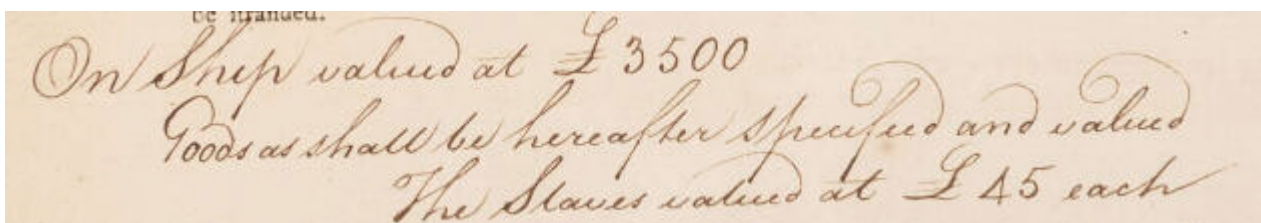 be stranded.
On Ship valued at £3500
Goods as shall be hereafter specified and valued
The Slaves valued at £45 each